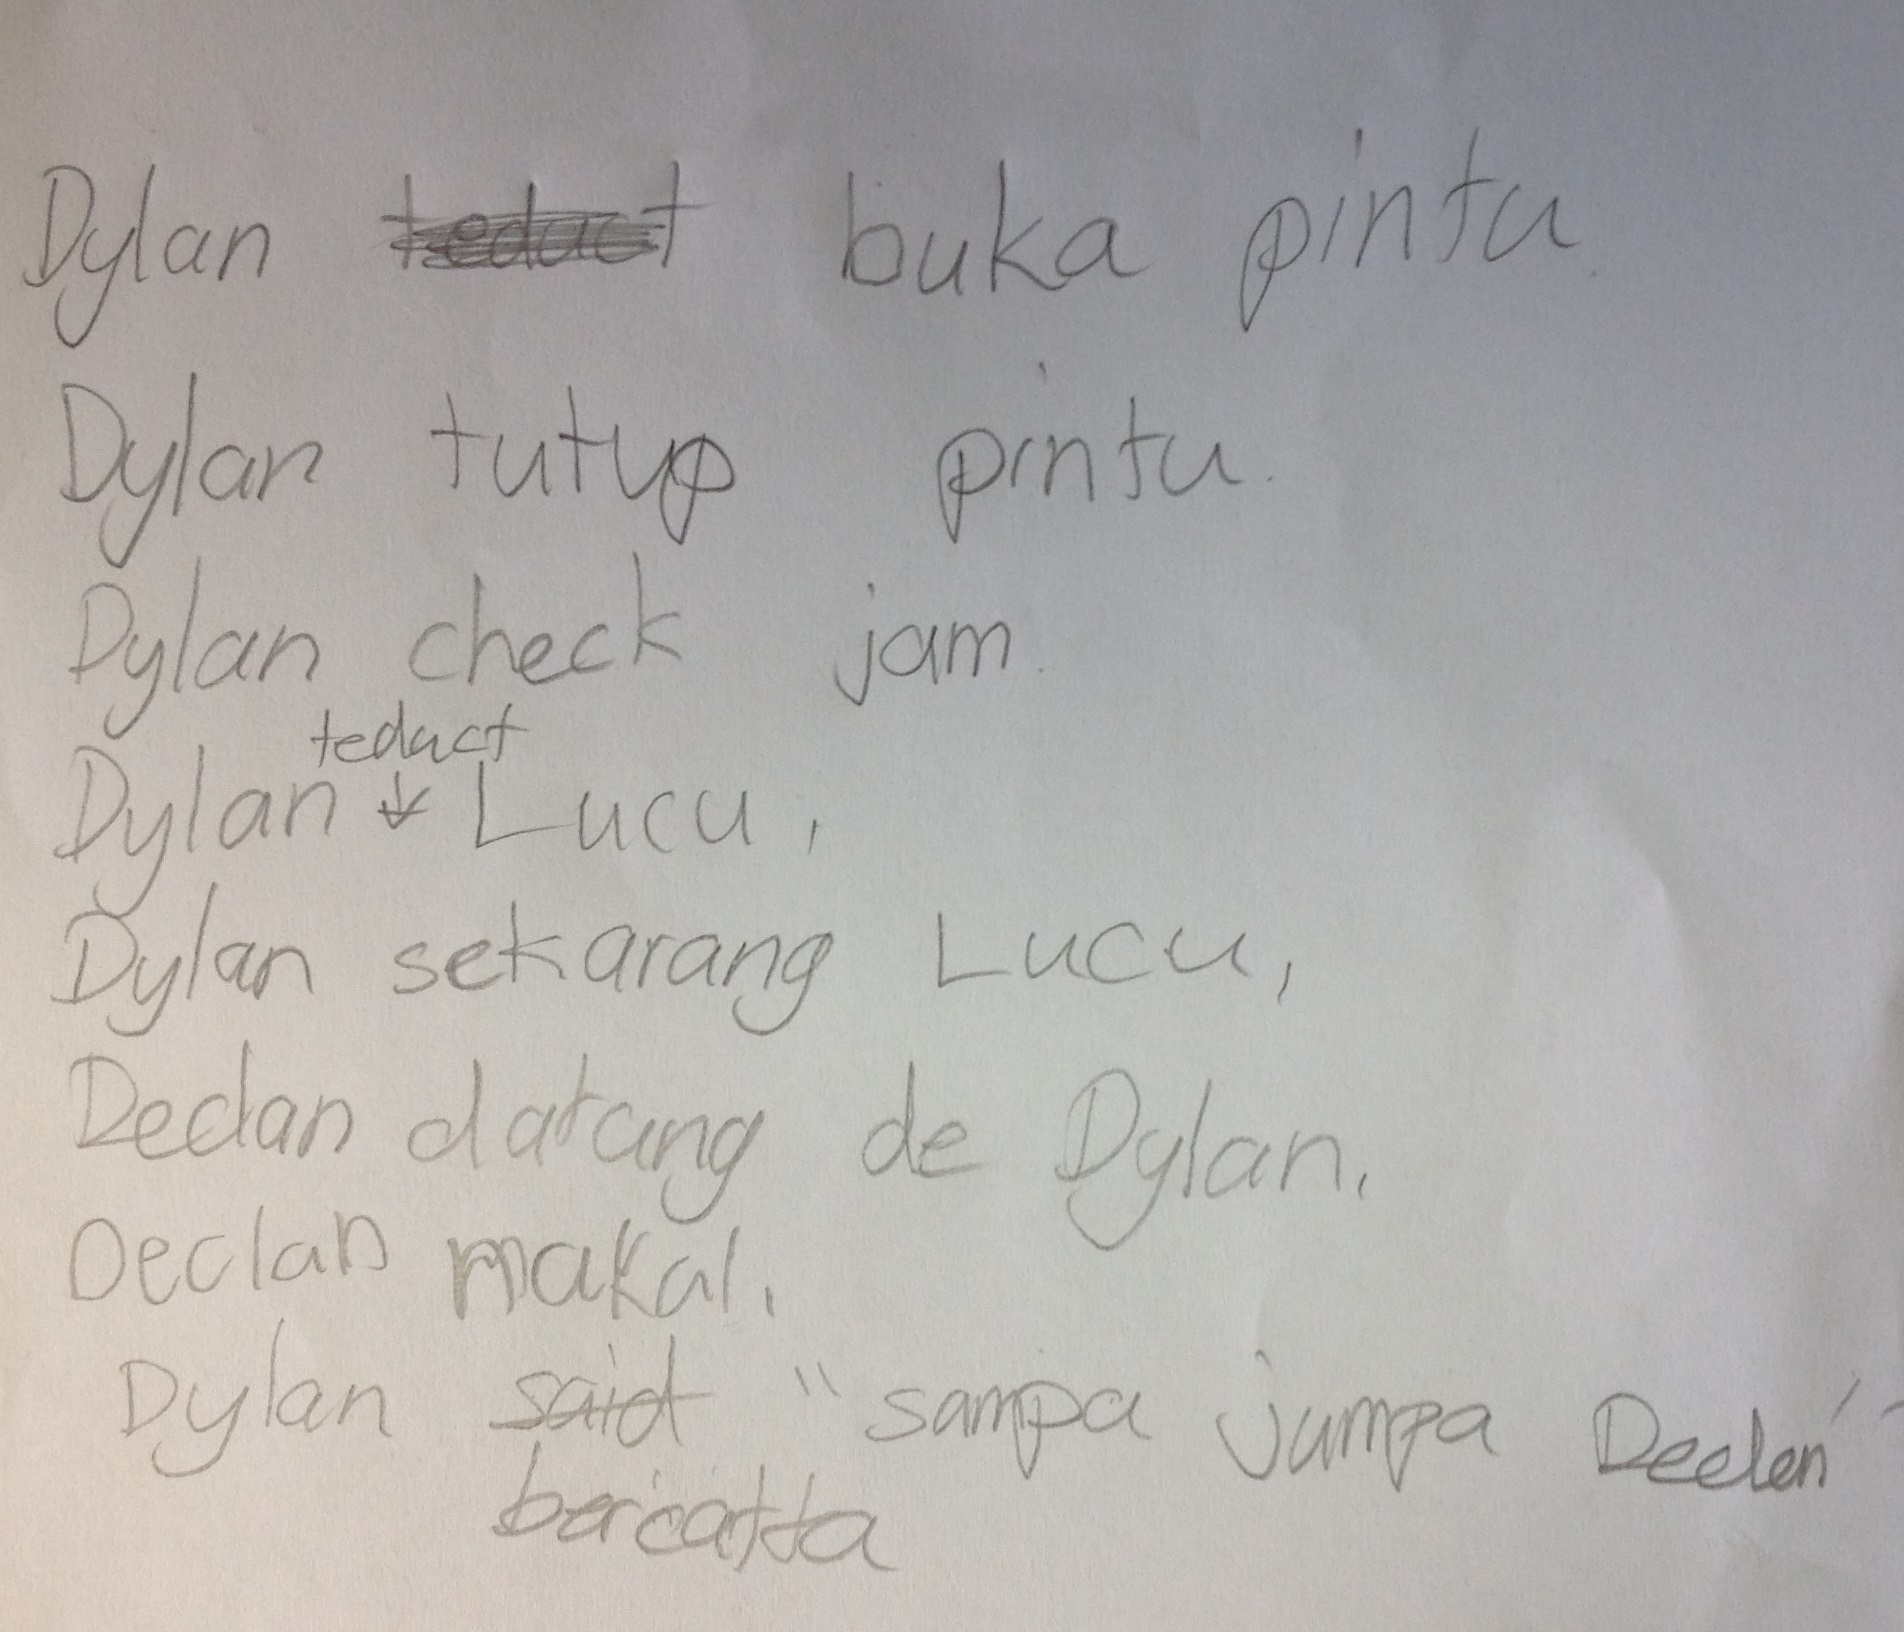 Dylan teduct buka pintu.
Dylan tutup pintu.
Dylan check jam.
teduct
Dylan Lucu,
Dylan sekarang Lucu,
Declan datang de Dylan.
Declan makal.
Dylan said "sampa jumpa Declen"
bercatta